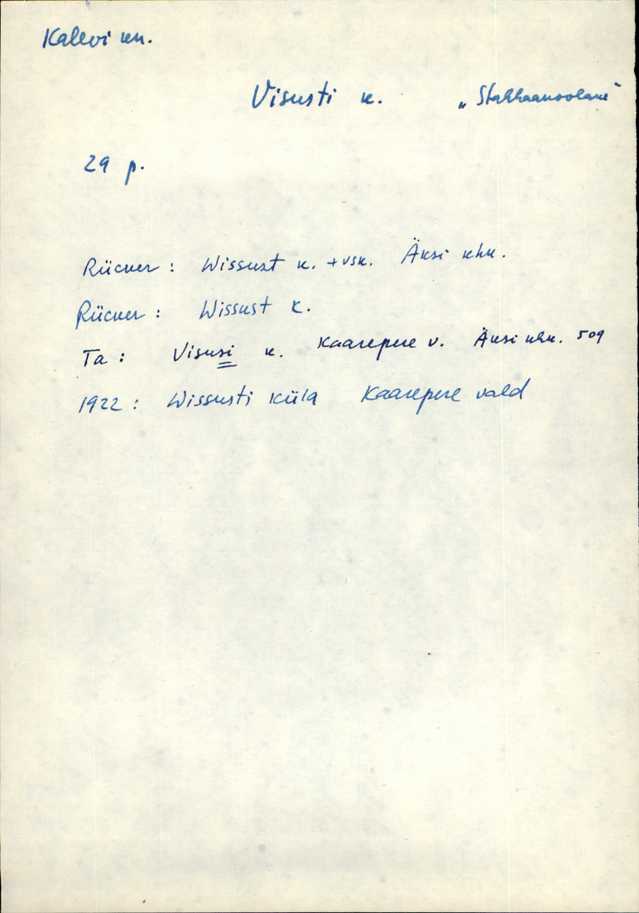 Kalevi kn.
Visusti k. „Stahhaanovlane"
29 p.
Rücker: Wissust k. + vsk. Äksi khk.
Rücker: Wissust k.
Ta: Visusi k. Kaarepere v. Äksi khk. 509
1922: Wissusti küla Kaarepere vald